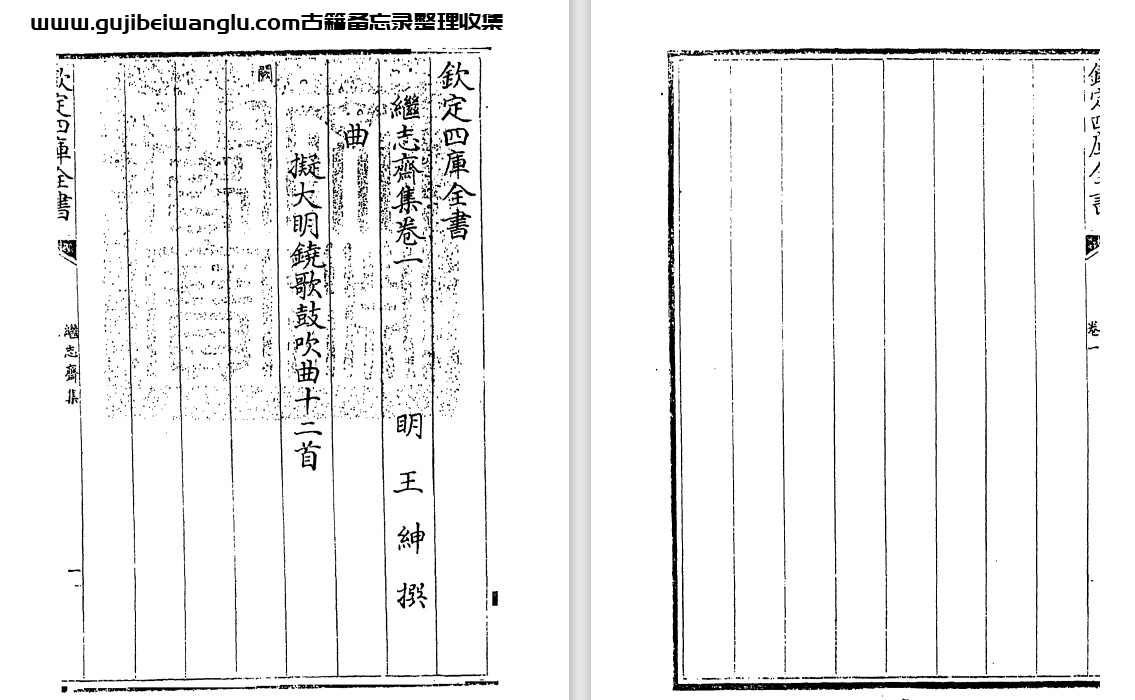 www.gujibeiwanglu.com古籍备忘录整理收集
欽定四庫全書
繼志齋集卷一
明 王 紳 撰
曲
擬大明鐃歌鼓吹曲十二首
闕
欽定四庫全書
繼志齋集
一
欽定四庫全書
卷一